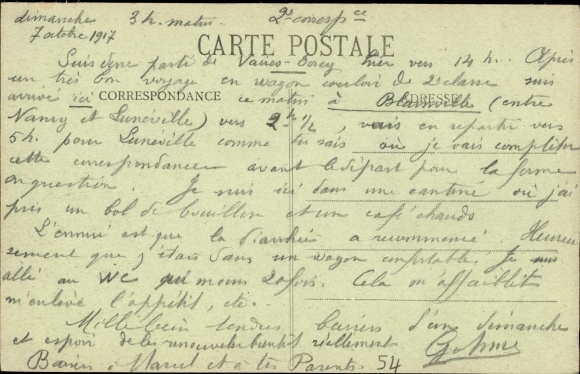 dimanche 3 h. matin. 2e corresp ce
7 octobre 1917
CARTE POSTALE
Suis donc parti de Vaires-Torcy hier vers 14 h. Après
un très bon voyage en wagon couloir de 2e classe suis
CORRESPONDANCE ADRESSE
arrivé ici ce matin à Blainville (entre
Nancy et Lunéville) vers 2h 1/2, vais en repartir vers
5h. pour Lunéville comme tu sais où je vais compléter
cette correspondance avant le départ pour la ferme
en question. Je suis ici dans une cantine où j'ai
pris un bol de bouillon et un café chauds
L'ennui est que la diarrhée a recommencé. Heureu
sement que j'étais dans un wagon confortable. Je suis
allé au WC au moins 20 fois. Cela m'affaiblit
m'enlève l'appétit, etc.
Mille bien tendres baisers d'un dimanche
et espoir de les renouveler bientôt réellement
Baisers à Marcel et à tes Parents. 54